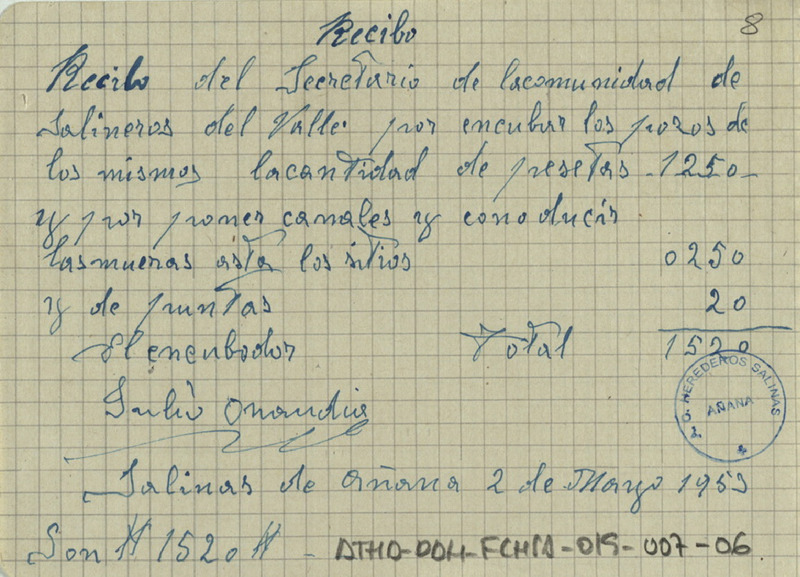 8
Recibo
Recibo del Secretario de lacomunidad de
Salineros del Valle por encubar los pozos de
los mismos lacantidad de pesetas 1250
y por poner canales y conoducir
lasmueras asta los sitios 0250
y de puntas 20
El encubador Total 1520
Julio Onandia
HEREDEROS SALINAS
AÑANA
Salinas de Añana 2 de Mayo 1953
Son # 1520 # - ATHA-DAH-FCHSA-019-007-06